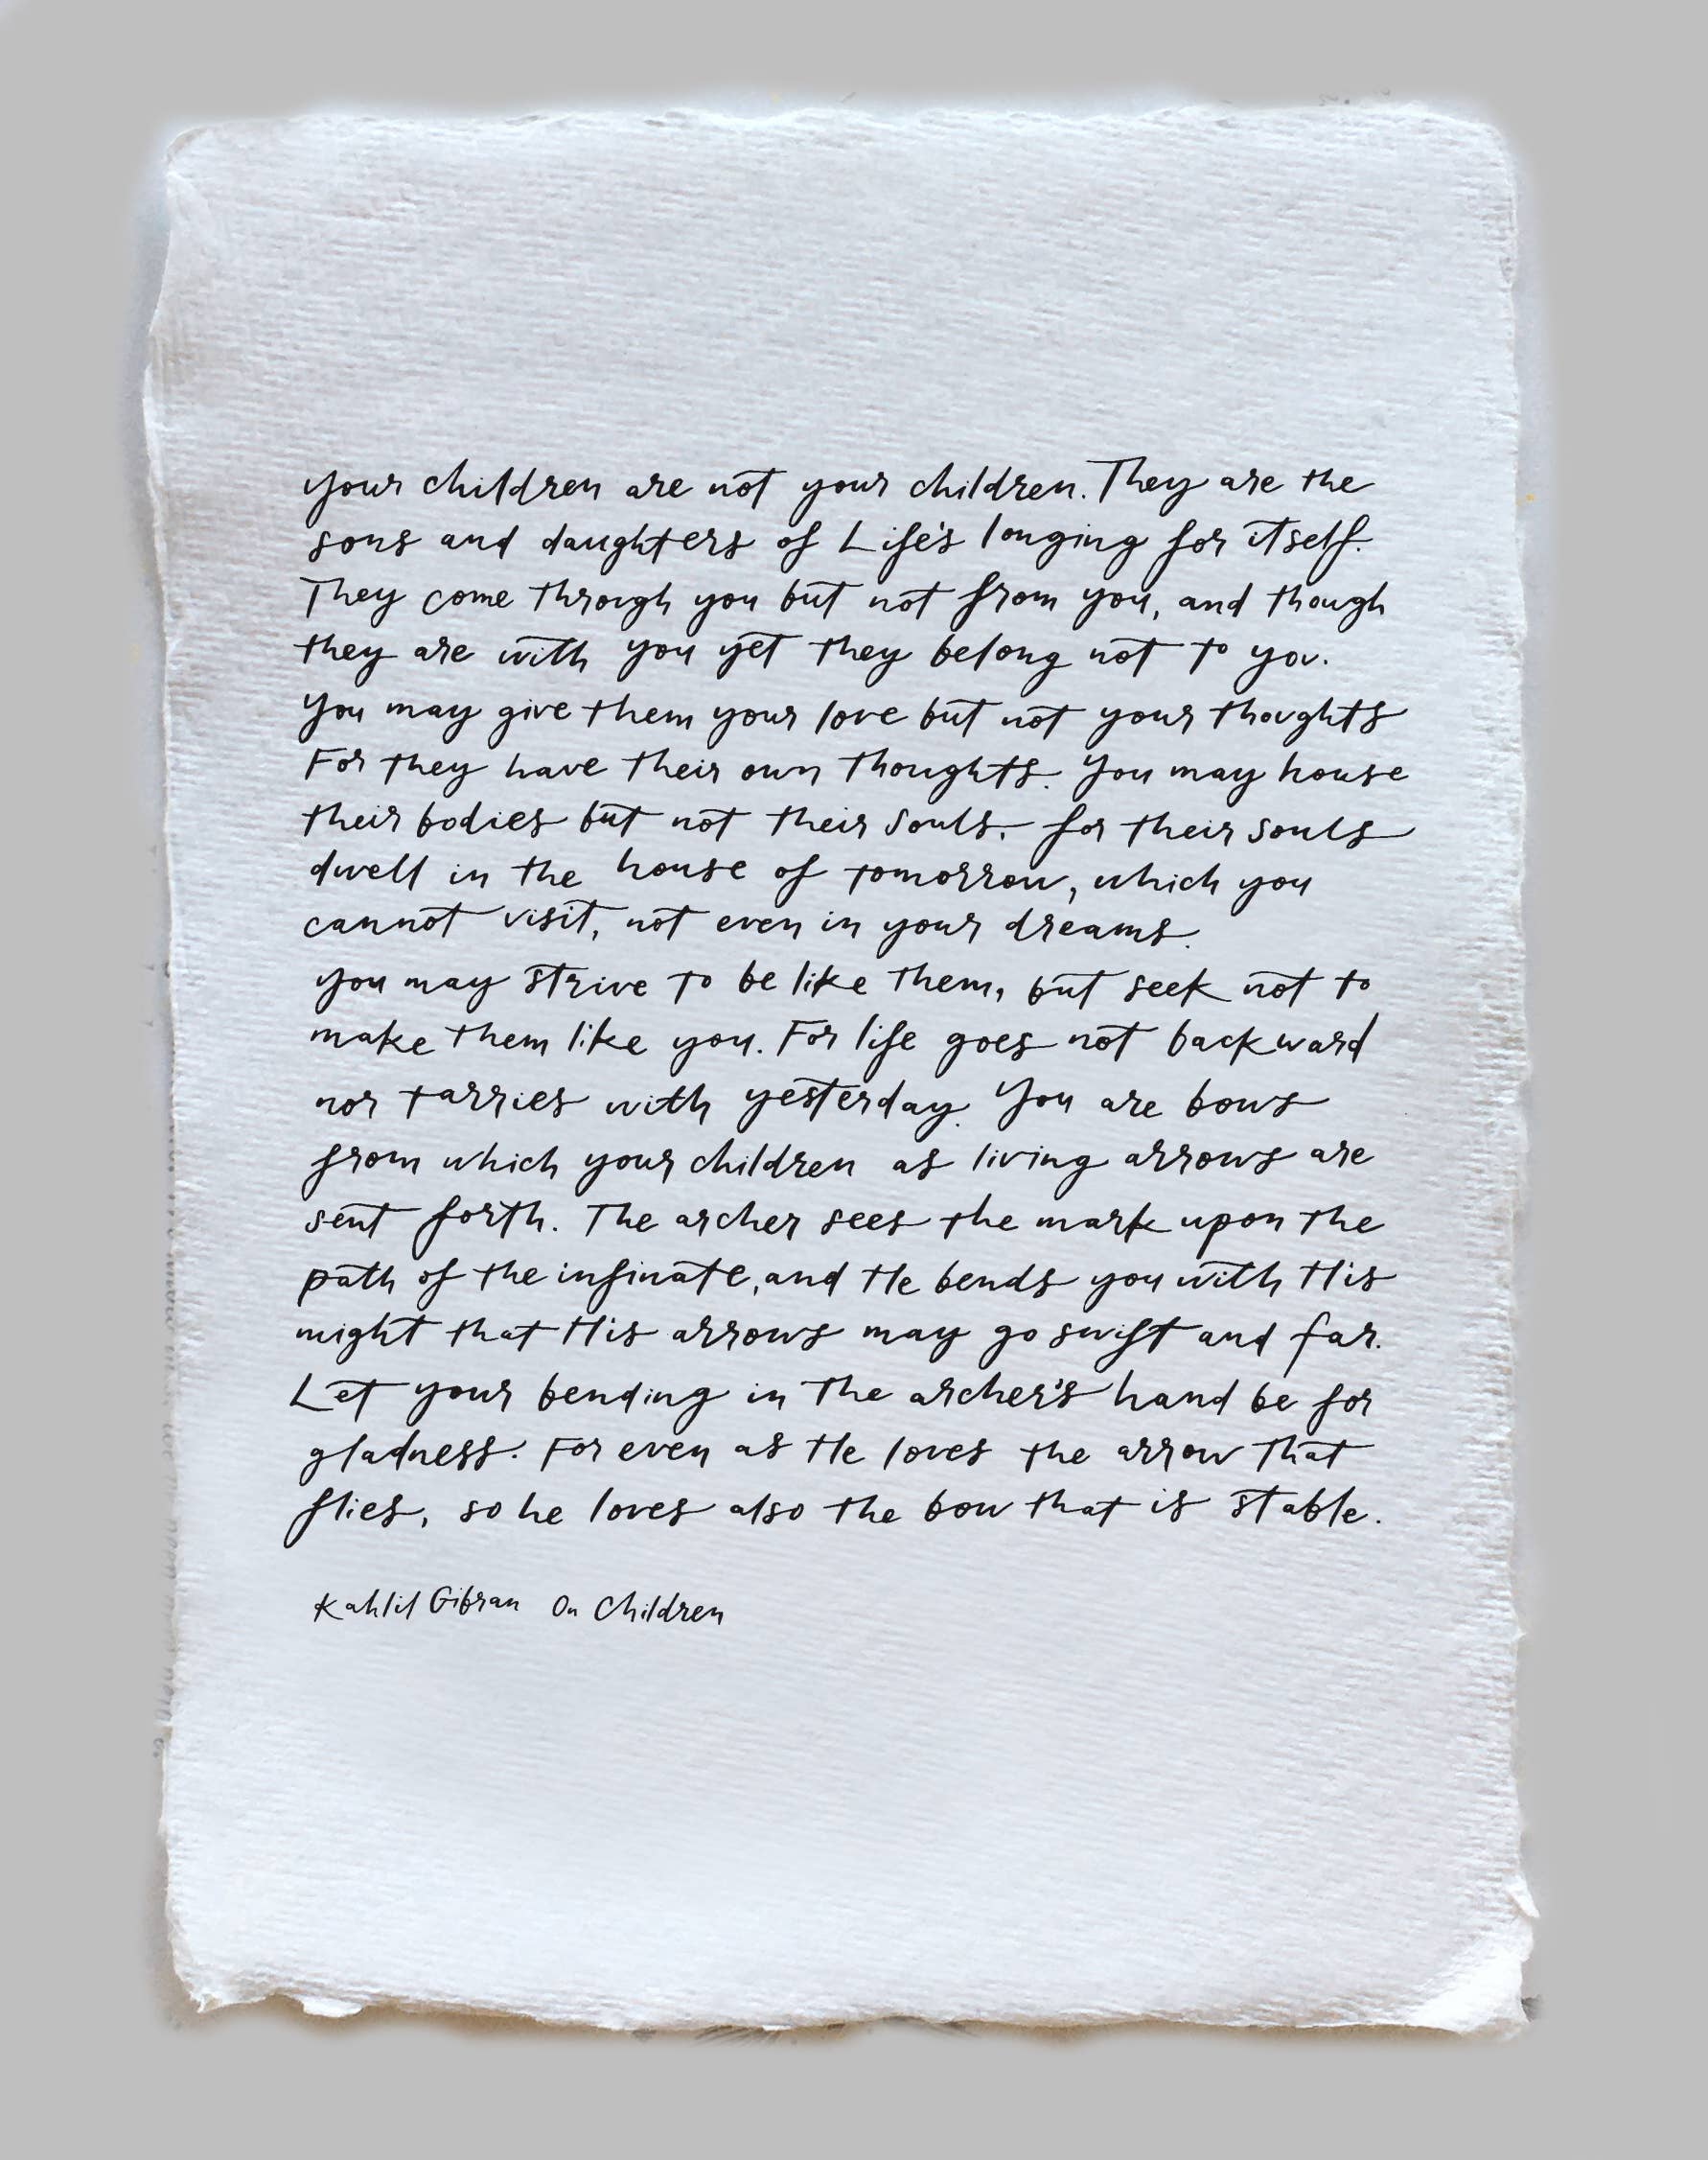 Your children are not your children. They are the
sons and daughters of Life's longing for itself.
They come through you but not from you, and though
they are with you yet they belong not to you.
You may give them your love but not your thoughts
For they have their own thoughts. You may house
their bodies but not their souls, for their souls
dwell in the house of tomorrow, which you
cannot visit, not even in your dreams.
you may strive to be like them, but seek not to
make them like you. For life goes not backward
nor tarries with yesterday. You are bows
from which your children as living arrows are
sent forth. The archer sees the mark upon the
path of the infinate, and He bends you with His
might that His arrows may go swift and far.
Let your bending in the archer's hand be for
gladness. For even as He loves the arrow that
flies, so he loves also the bow that is stable.
Kahlil Gibran On Children